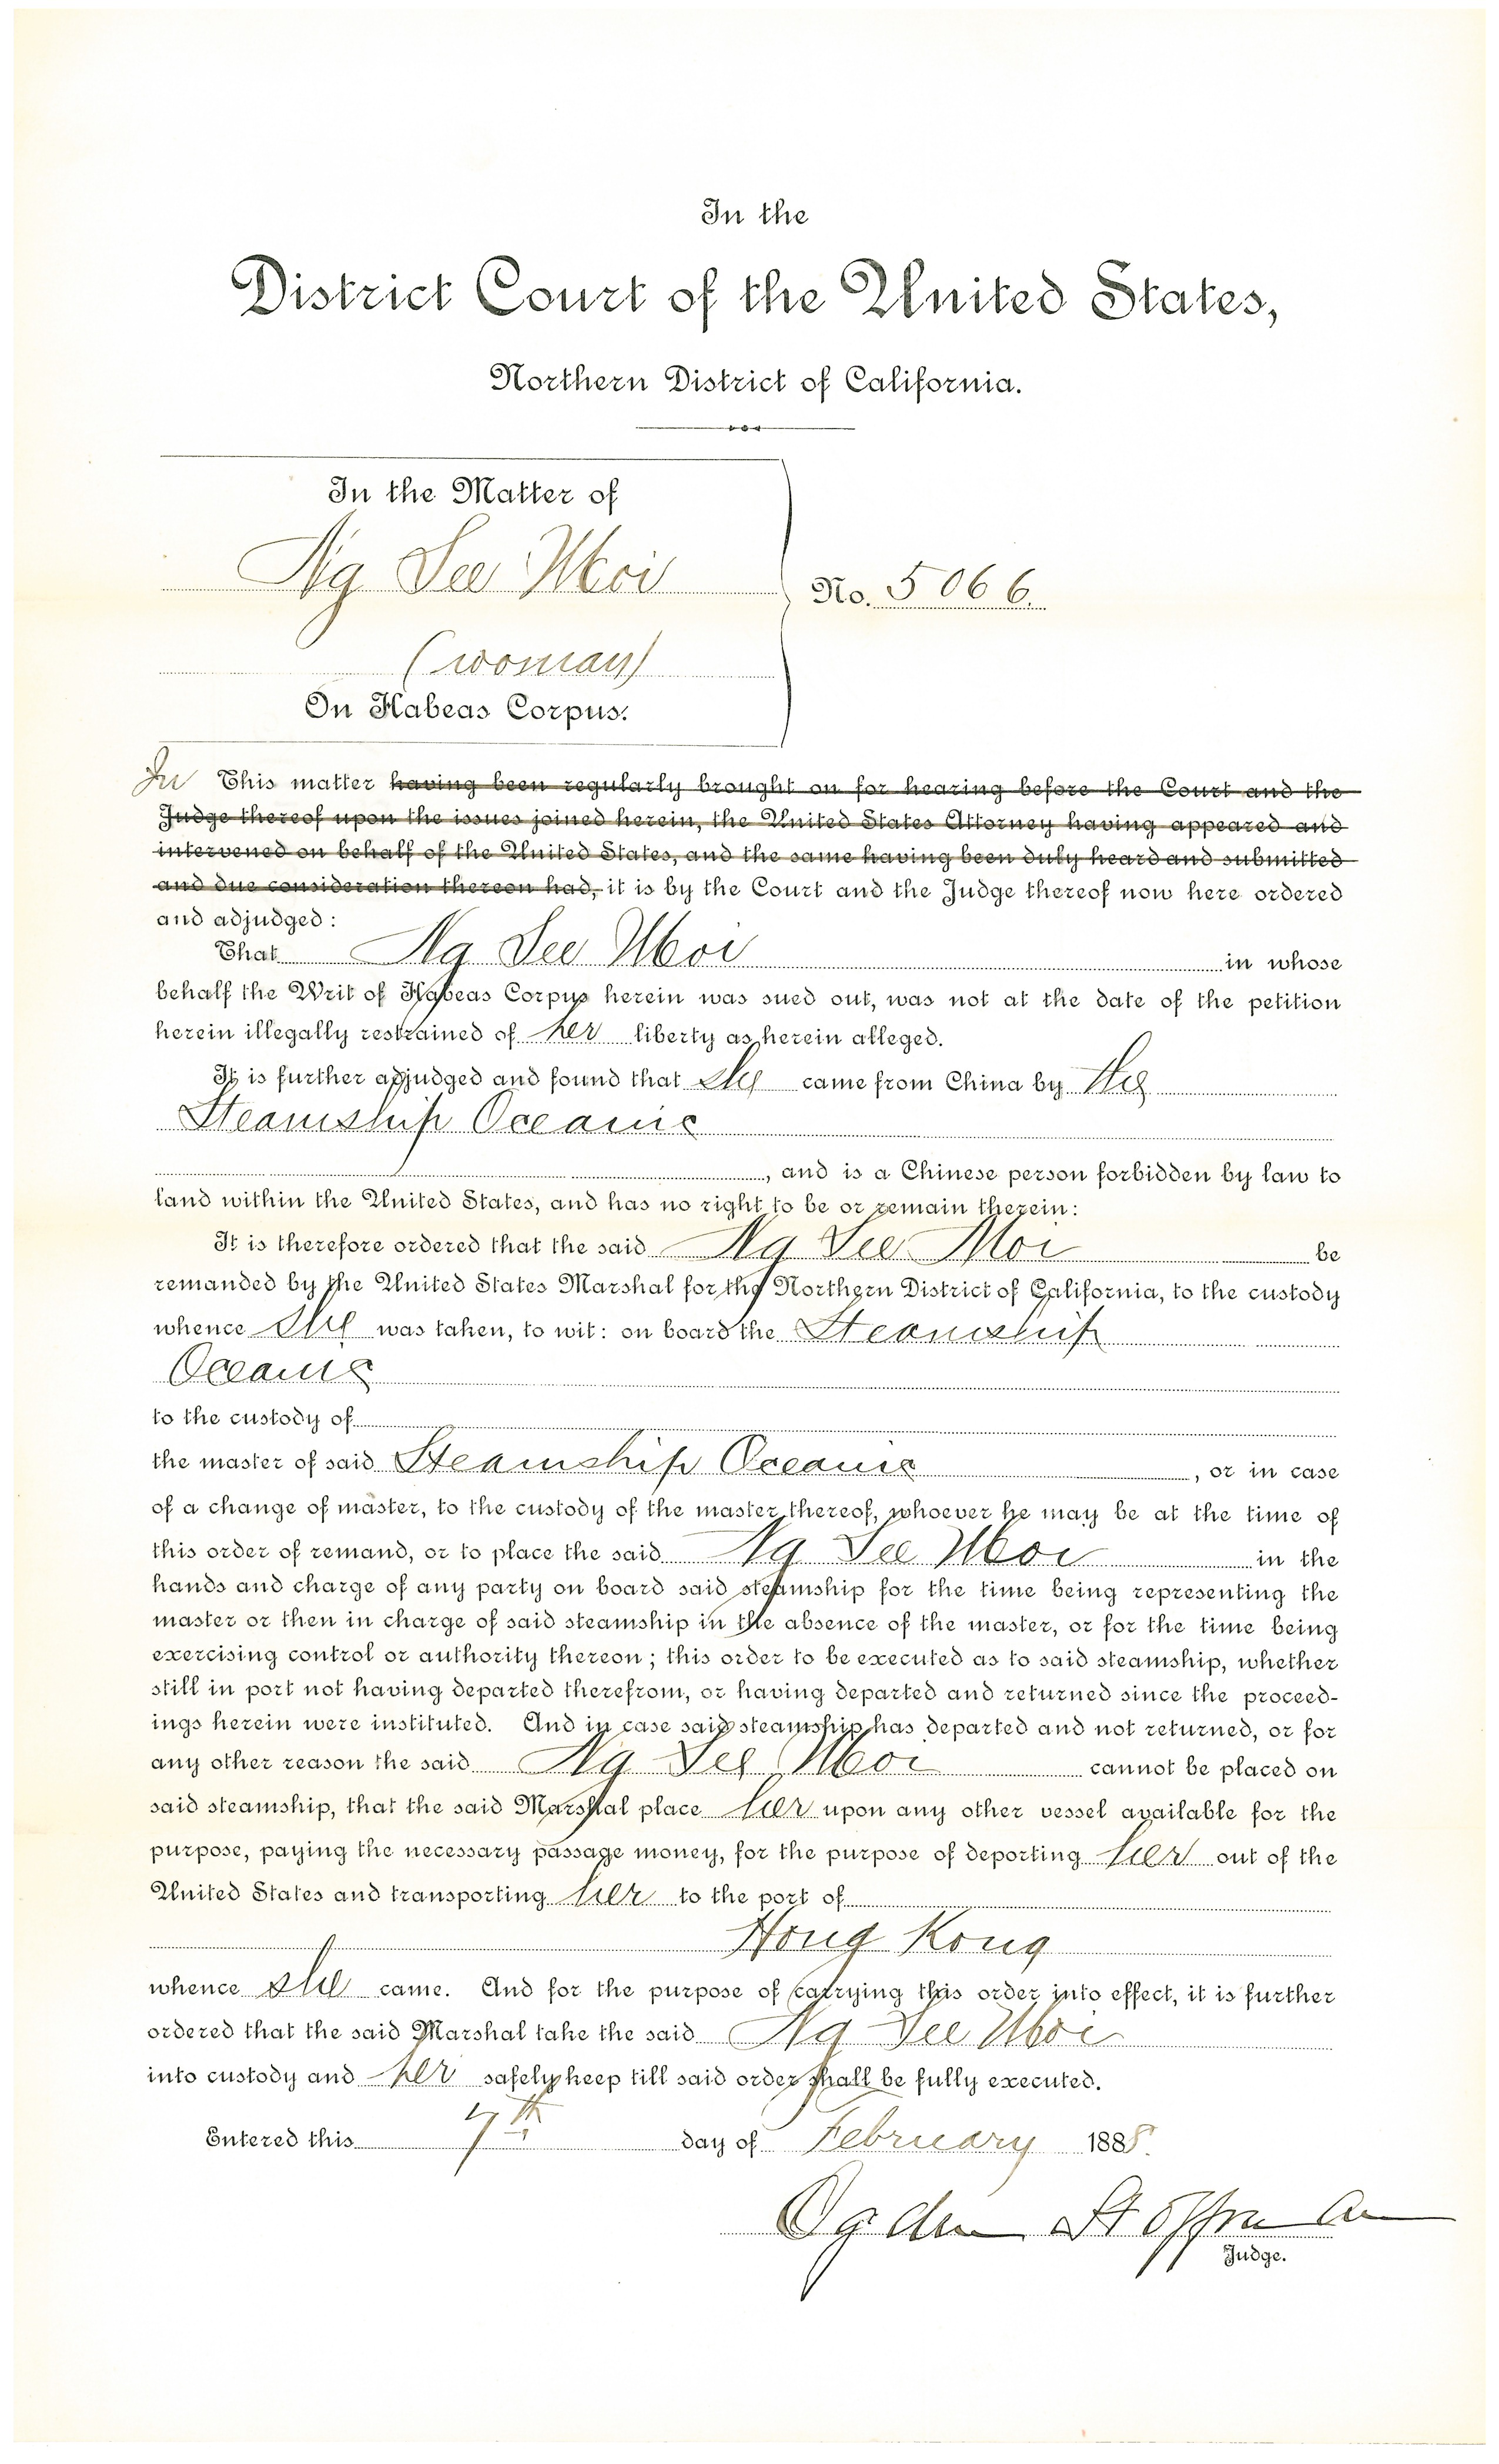 In the
District Court of the United States,
Northern District of California.
In the Matter of
Ng See Moi
No. 5066.
(woman)
On Habeas Corpus.
In This matter having been regularly brought on for hearing before the Court and the
Judge thereof upon the issues joined herein, the United States Attorney having appeared and
intervened on behalf of the United States, and the same having been duly heard and submitted
and due consideration thereon had, it is by the Court and the Judge thereof now here ordered
and adjudged:
That Ng See Moi in whose
behalf the Writ of Habeas Corpus herein was sued out, was not at the date of the petition
herein illegally restrained of her liberty as herein alleged.
It is further adjudged and found that she came from China by the
Steamship Oceanic
, and is a Chinese person forbidden by law to
land within the United States, and has no right to be or remain therein:
It is therefore ordered that the said Ng See Moi be
remanded by the United States Marshal for the Northern District of California, to the custody
whence she was taken, to wit: on board the Steamship
Oceanic
to the custody of
the master of said Steamship Oceanic, or in case
of a change of master, to the custody of the master thereof, whoever he may be at the time of
this order of remand, or to place the said Ng See Moi in the
hands and charge of any party on board said steamship for the time being representing the
master or then in charge of said steamship in the absence of the master, or for the time being
exercising control or authority thereon; this order to be executed as to said steamship, whether
still in port not having departed therefrom, or having departed and returned since the proceed-
ings herein were instituted. And in case said steamship has departed and not returned, or for
any other reason the said Ng See Moi cannot be placed on
said steamship, that the said Marshal place her upon any other vessel available for the
purpose, paying the necessary passage money, for the purpose of deporting her out of the
United States and transporting her to the port of
Hong Kong
whence she came. And for the purpose of carrying this order into effect, it is further
ordered that the said Marshal take the said Ng See Moi
into custody and her safely keep till said order shall be fully executed.
Entered this 7th day of February 1888.
Ogden Hoffman
Judge.